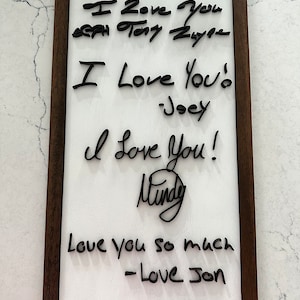 I Love You
Tony
I Love You!
-Joey
I Love You!
Mindy
Love you so much
-Love Jon